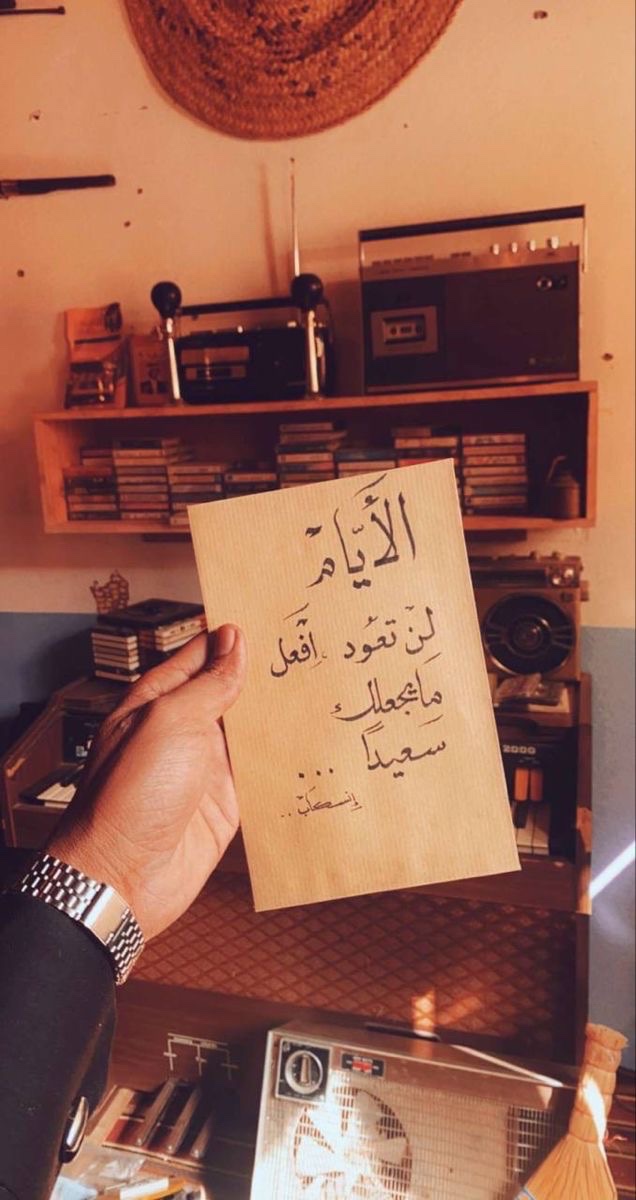 الأَيَّام
لن تعود . اِفْعَل
مَا يجعلك
سَعيداً ...
إنسكاب ..
2000